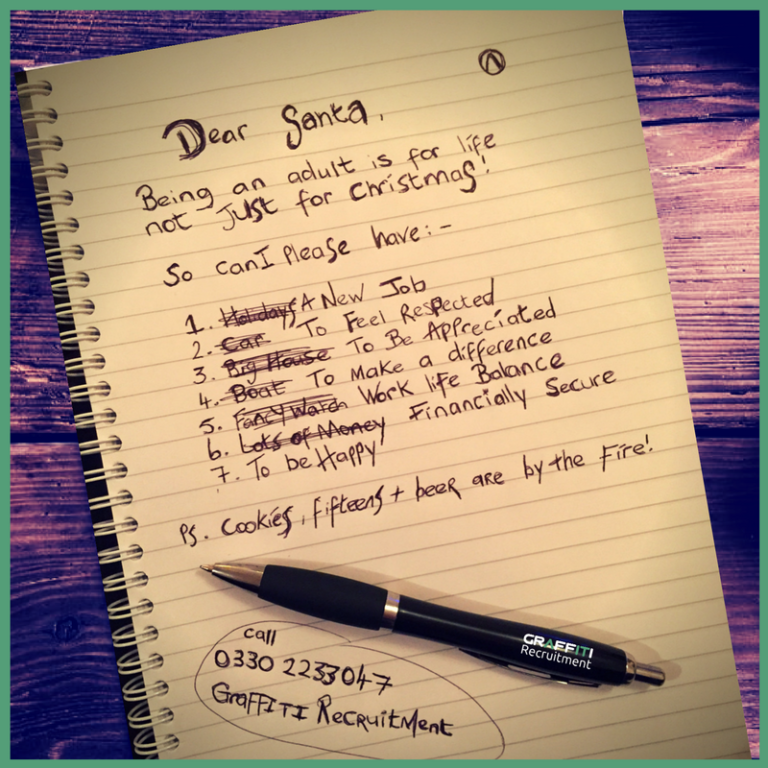 Dear Santa,
Being an adult is for life
not Just for Christmas!
So can I Please have:-
1. Holidays A New Job
2. Car To Feel Respected
3. Big House To Be Appreciated
4. Boat To Make a difference
5. Fancy Watch Work life Balance
6. Lots of Money Financially Secure
7. To be Happy
Ps. Cookies, Fifteens + beer are by the Fire!
GRAFFITI
Recruitment
call
0330 2233047
GRAFFITI RecRuitMent